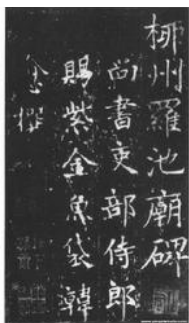 柳州羅池廟碑
尚書吏部侍郎
賜紫金魚袋韓
愈撰